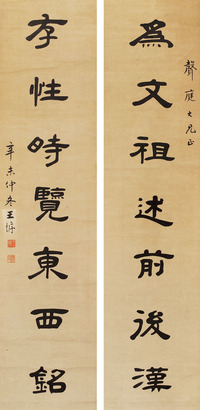 聲庭大兄正
為文祖述前後漢
存性時覽東西銘
辛未仲冬王